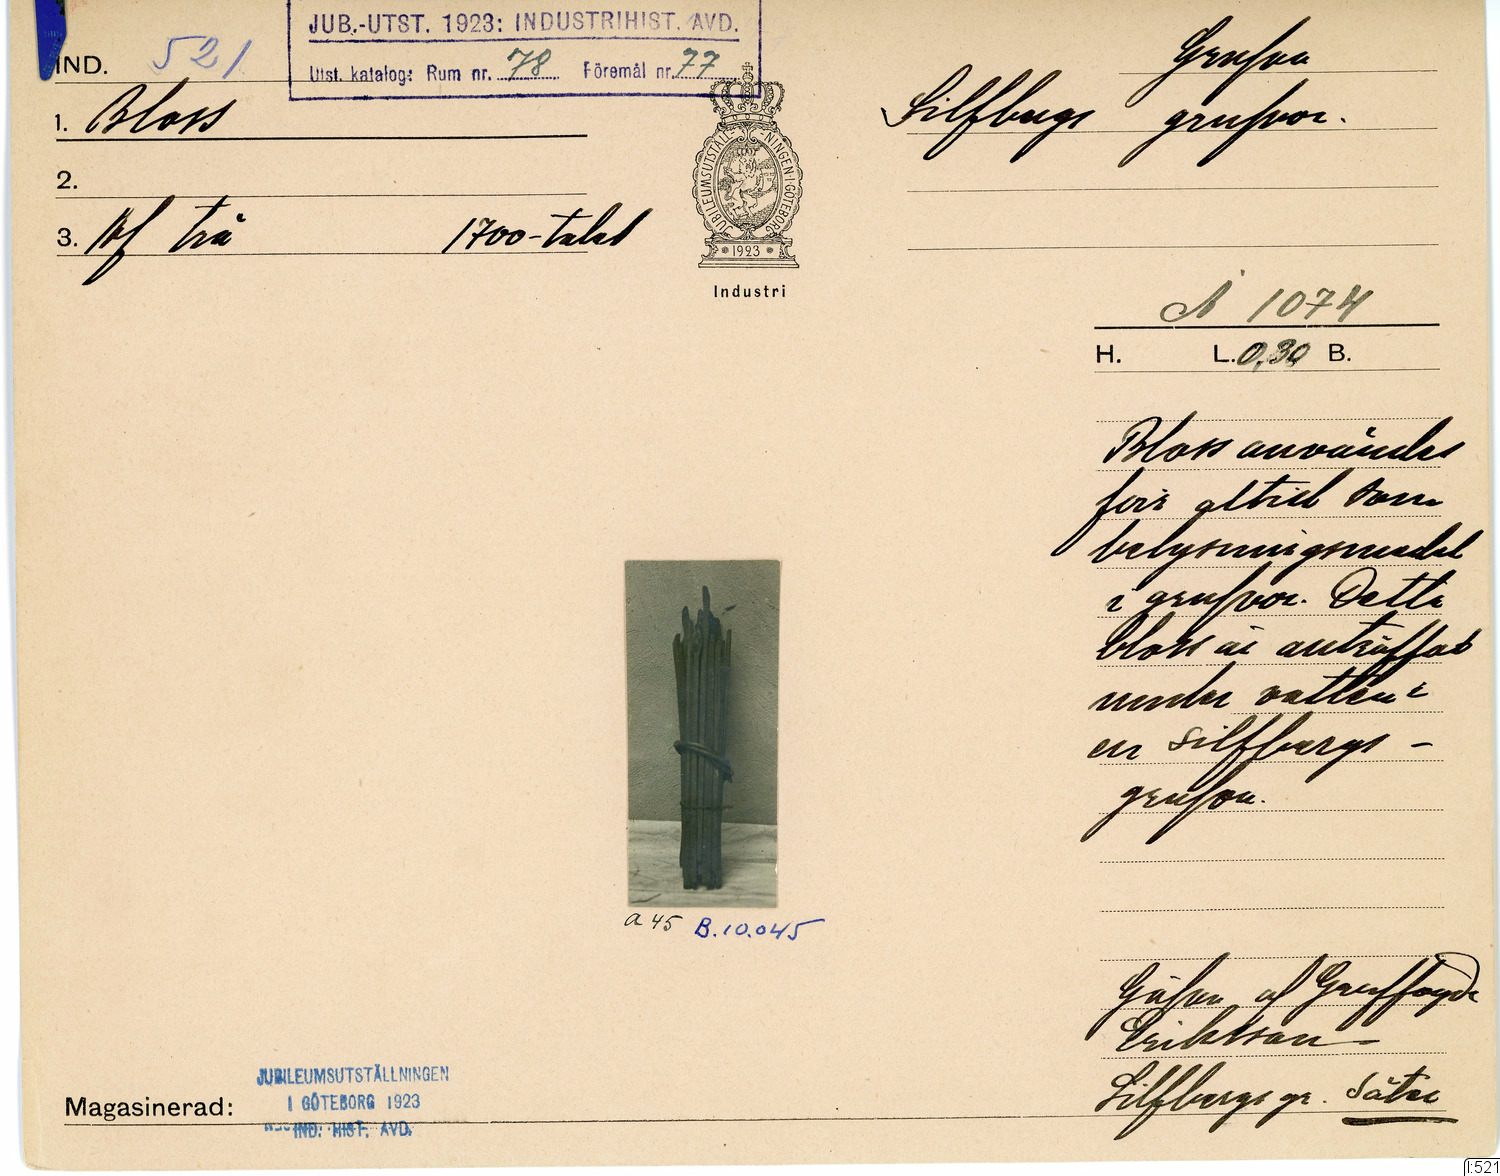 JUB.-UTST. 1923: INDUSTRIHIST. AVD.
Utst. katalog: Rum nr. 78 Föremål nr. 77
IND. 521
1. Bloss
2.
3. Af trä 1700-talet
JUBILEUMSUTSTÄLLNINGEN I GÖTEBORG
1923
Industri
Grufva
Silfbergs grufvor.
A 1074
H. L. 0,30 B.
Bloss användes
för alltid som
belysningsmedel
i grufvor. Detta
bloss är anträffad
under vatten i
en Silfbergs-
grufva.
a 45 B.10.045
Gåfva af Gruffogde
Eriksson-
Silfbergs gr. Säter
Magasinerad:
JUBILEUMSUTSTÄLLNINGEN
I GÖTEBORG 1923
IND. HIST. AVD.
I:521